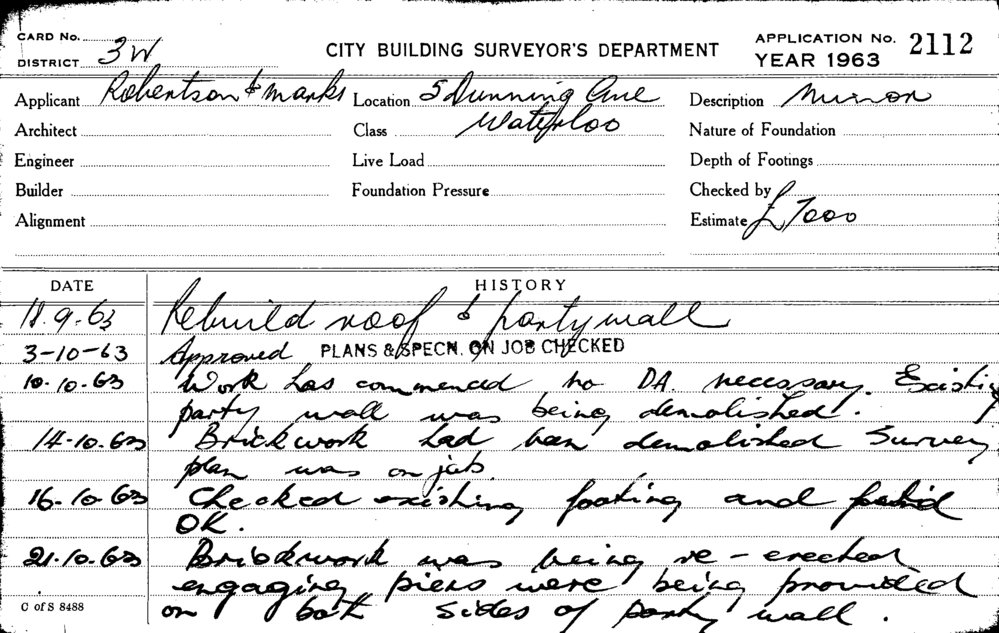 CARD No.
DISTRICT 3W
CITY BUILDING SURVEYOR'S DEPARTMENT
APPLICATION No. 2112
YEAR 1963
Applicant Robertson & Marks Location 5 Dunning Ave Description Minor
Architect Class Waterloo Nature of Foundation
Engineer Live Load Depth of Footings
Builder Foundation Pressure Checked by
Alignment Estimate £7000
DATE HISTORY
18.9.63 Rebuild roof & party wall
3-10-63 Approved PLANS & SPECN. ON JOB CHECKED
10.10.63 Work has commenced no DA. necessary. Existing
party wall was being demolished.
14-10.63 Brickwork had been demolished Survey
plan was on job
16-10-63 Checked existing footing and found
OK.
21.10.63 Brickwork was being re-erected
engaging piers were being provided
on both sides of party wall.
C of S 8488